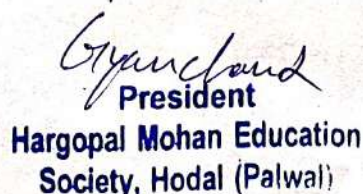 Gyanchand
President
Hargopal Mohan Education
Society, Hodal (Palwal)